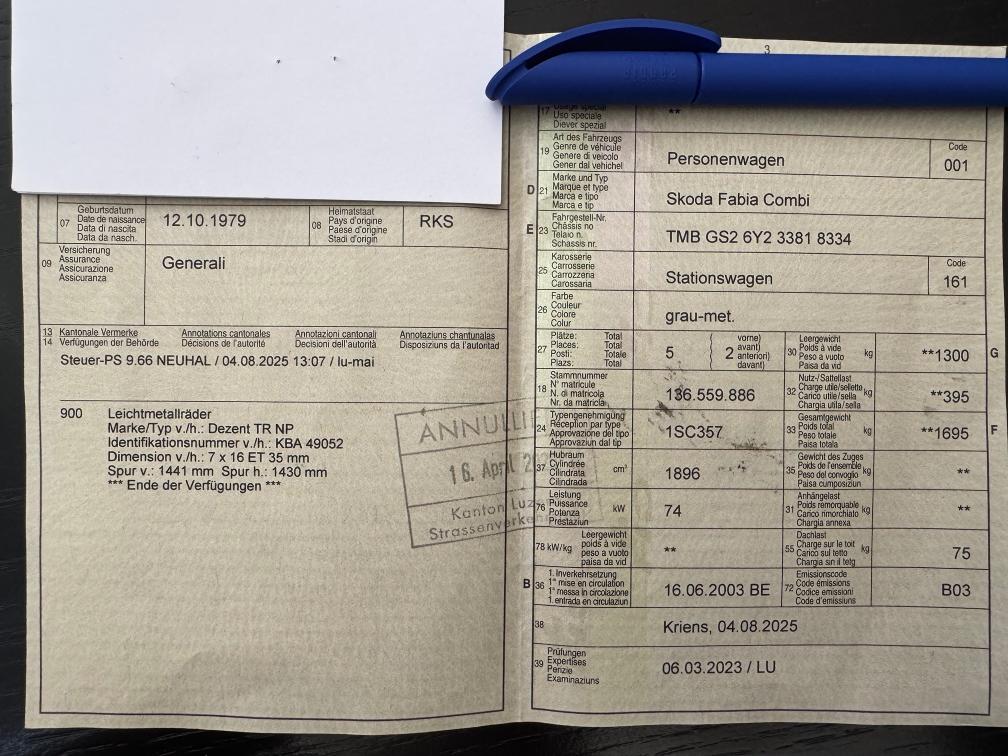 3
17
Uso speciale
Diever spezial
**
19
Art des Fahrzeugs
Genre de véhicule
Genere di veicolo
Gener dal vehichel
Personenwagen
Code
001
D
21
Marke und Typ
Marque et type
Marca e tipo
Marca e tip
Skoda Fabia Combi
E
23
Fahrgestell-Nr.
Châssis no
Telaio n.
Schassis nr.
TMB GS2 6Y2 3381 8334
25
Karosserie
Carrosserie
Carrozzeria
Carossaria
Stationswagen
Code
161
26
Farbe
Couleur
Colore
Colur
grau-met.
27
Plätze: Total
Places: Total
Posti: Totale
Plazs: Total
5
( 2
vorne)
avant)
anteriori)
davant)
30
Leergewicht
Poids à vide
Peso a vuoto
Paisa da vid
kg
**1300
G
18
Stammnummer
N° matricule
N. di matricola
Nr. da matricla
136.559.886
32
Nutz-/Sattellast
Charge utile/sellette
Carico utile/sella
Chargia utila/sella
kg
**395
24
Typengenehmigung
Réception par type
Approvazione del tipo
Approvaziun dal tip
1SC357
33
Gesamtgewicht
Poids total
Peso totale
Paisa totala
kg
**1695
F
37
Hubraum
Cylindrée
Cilindrata
Cilindrada
cm³
1896
35
Gewicht des Zuges
Poids de l'ensemble
Peso del convoglio
Paisa cumposiziun
kg
**
76
Leistung
Puissance
Potenza
Prestaziun
kW
74
31
Anhängelast
Poids remorquable
Carico rimorchiato
Chargia annexa
kg
**
78 kW/kg
Leergewicht
poids à vide
peso a vuoto
paisa da vid
**
55
Dachlast
Charge sur le toit
Carico sul tetto
Chargia sin il tetg
kg
75
B
36
1. Inverkehrsetzung
1re mise en circulation
1a messa in circolazione
1. entrada en circulaziun
16.06.2003 BE
72
Emissionscode
Code émissions
Codice emissioni
Code d'emissiuns
B03
38
Kriens, 04.08.2025
39
Prüfungen
Expertises
Perizie
Examinaziuns
06.03.2023 / LU
07
Geburtsdatum
Date de naissance
Data di nascita
Data da nasch.
12.10.1979
08
Heimatstaat
Pays d'origine
Paese d'origine
Stadi d'origin
RKS
09
Versicherung
Assurance
Assicurazione
Assicuranza
Generali
13 Kantonale Vermerke Annotations cantonales Annotazioni cantonali Annotaziuns chantunalas
14 Verfügungen der Behörde Décisions de l'autorité Decisioni dell'autorità Disposiziuns da l'autoritad
Steuer-PS 9.66 NEUHAL / 04.08.2025 13:07 / lu-mai
900 Leichtmetallräder
Marke/Typ v./h.: Dezent TR NP
Identifikationsnummer v./h.: KBA 49052
Dimension v./h.: 7 x 16 ET 35 mm
Spur v.: 1441 mm Spur h.: 1430 mm
*** Ende der Verfügungen ***
16. April
Kanton